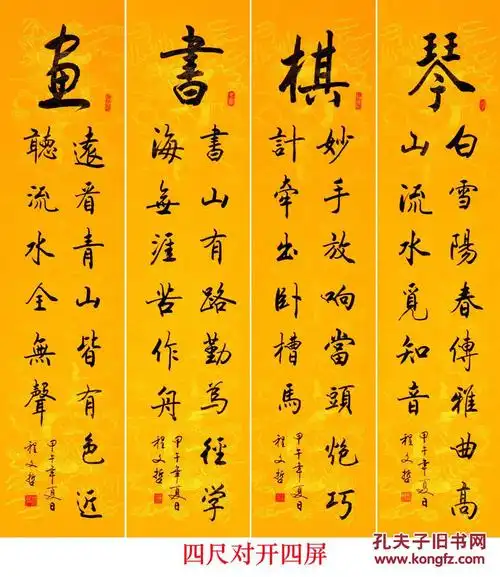 琴
白雪陽春傳雅曲高
山流水覓知音
甲午年夏日
程文哲
棋
妙手放响當頭炮巧
計牽出卧槽馬
甲午年夏日
程文哲
書
書山有路勤為徑学
海無涯苦作舟
甲午年夏日
程文哲
畫
遠看青山皆有色近
聽流水全無聲
甲午年夏日
程文哲
四尺对开四屏
孔夫子旧书网
www.kongfz.com